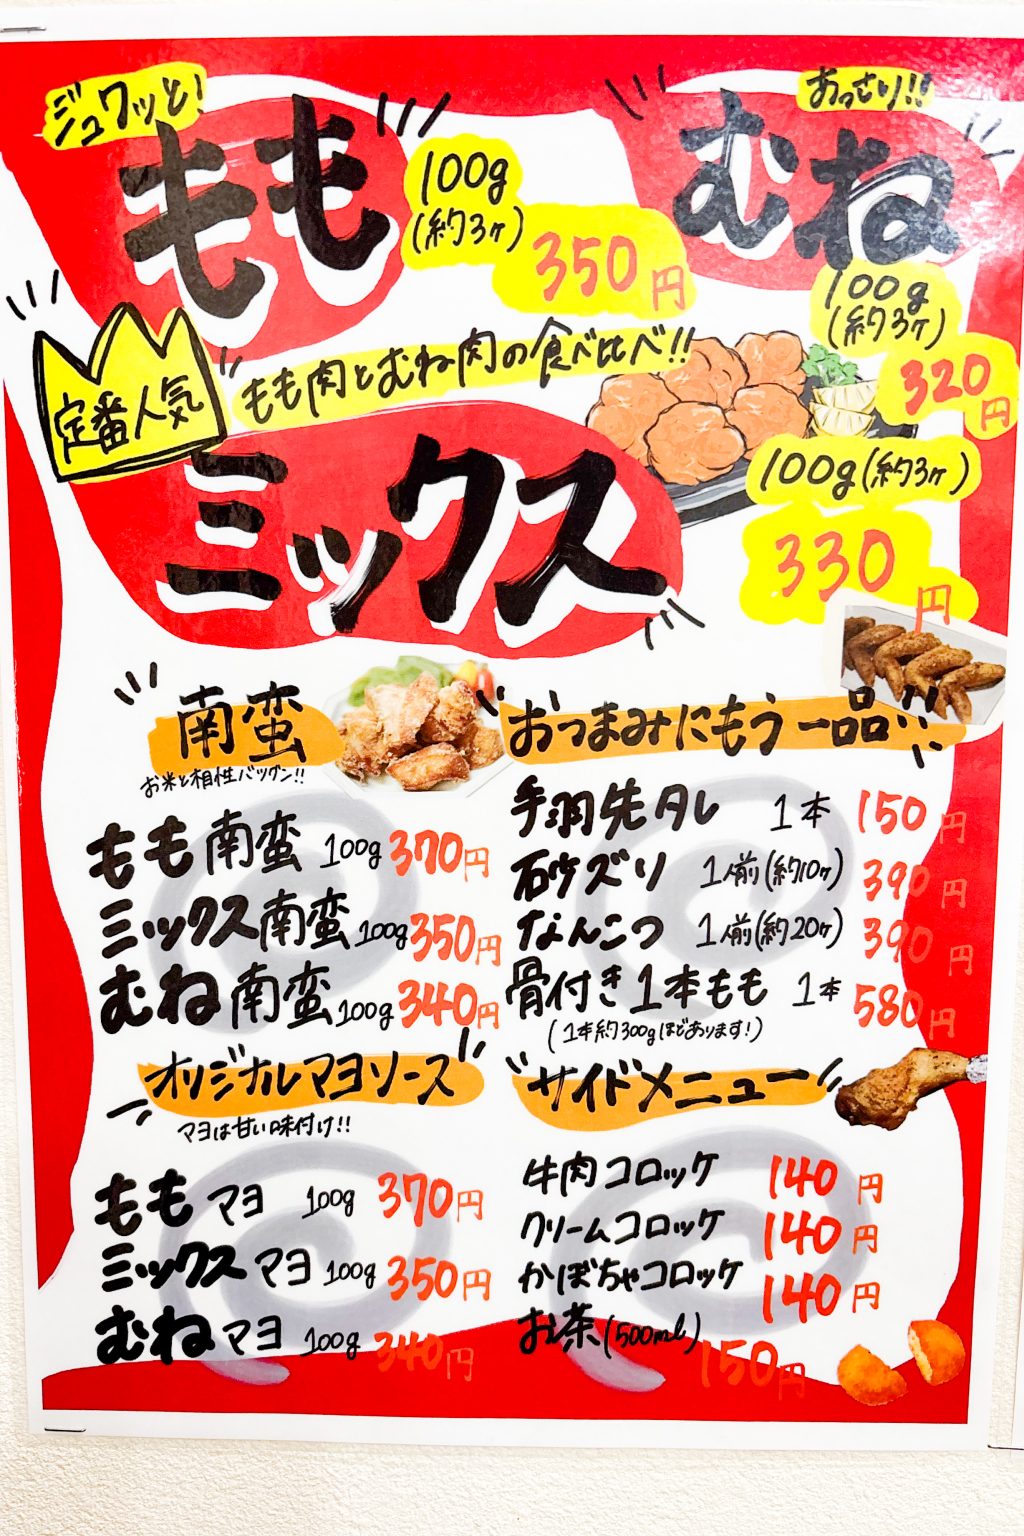 ジュワッと!
もも
100g
(約3ヶ)
350円
おっさり!!
むね
100g
(約3ヶ)
320円
定番人気
もも肉とむね肉の食べ比べ!!
ミックス
100g(約3ヶ)
330円
南蛮
お米と相性バツグン!!
もも南蛮 100g 370円
ミックス南蛮 100g 350円
むね南蛮 100g 340円
オリジナルマヨソース
マヨは甘い味付け!!
ももマヨ 100g 370円
ミックスマヨ 100g 350円
むねマヨ 100g 340円
おつまみにもう一品!!
手羽先タレ 1本 150円
砂ズリ 1人前(約10ヶ) 390円
なんこつ 1人前(約20ヶ) 390円
骨付き1本もも 1本 580円
(1本約300gほどあります!)
サイドメニュー
牛肉コロッケ 140円
クリームコロッケ 140円
かぼちゃコロッケ 140円
お茶(500ml) 150円